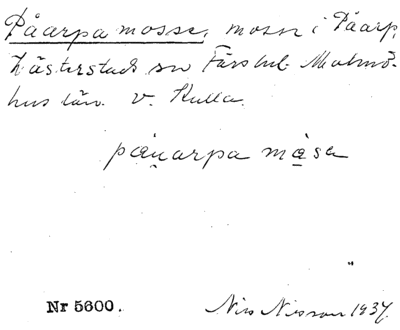 Påarpa mosse, mosse i Påarp,
Västerstads sn Färs hd. Malmö-
hus län. V. Kulla.
påu̯arpa må̱sa
Nr 5600.
Nils Nilsson 1937.